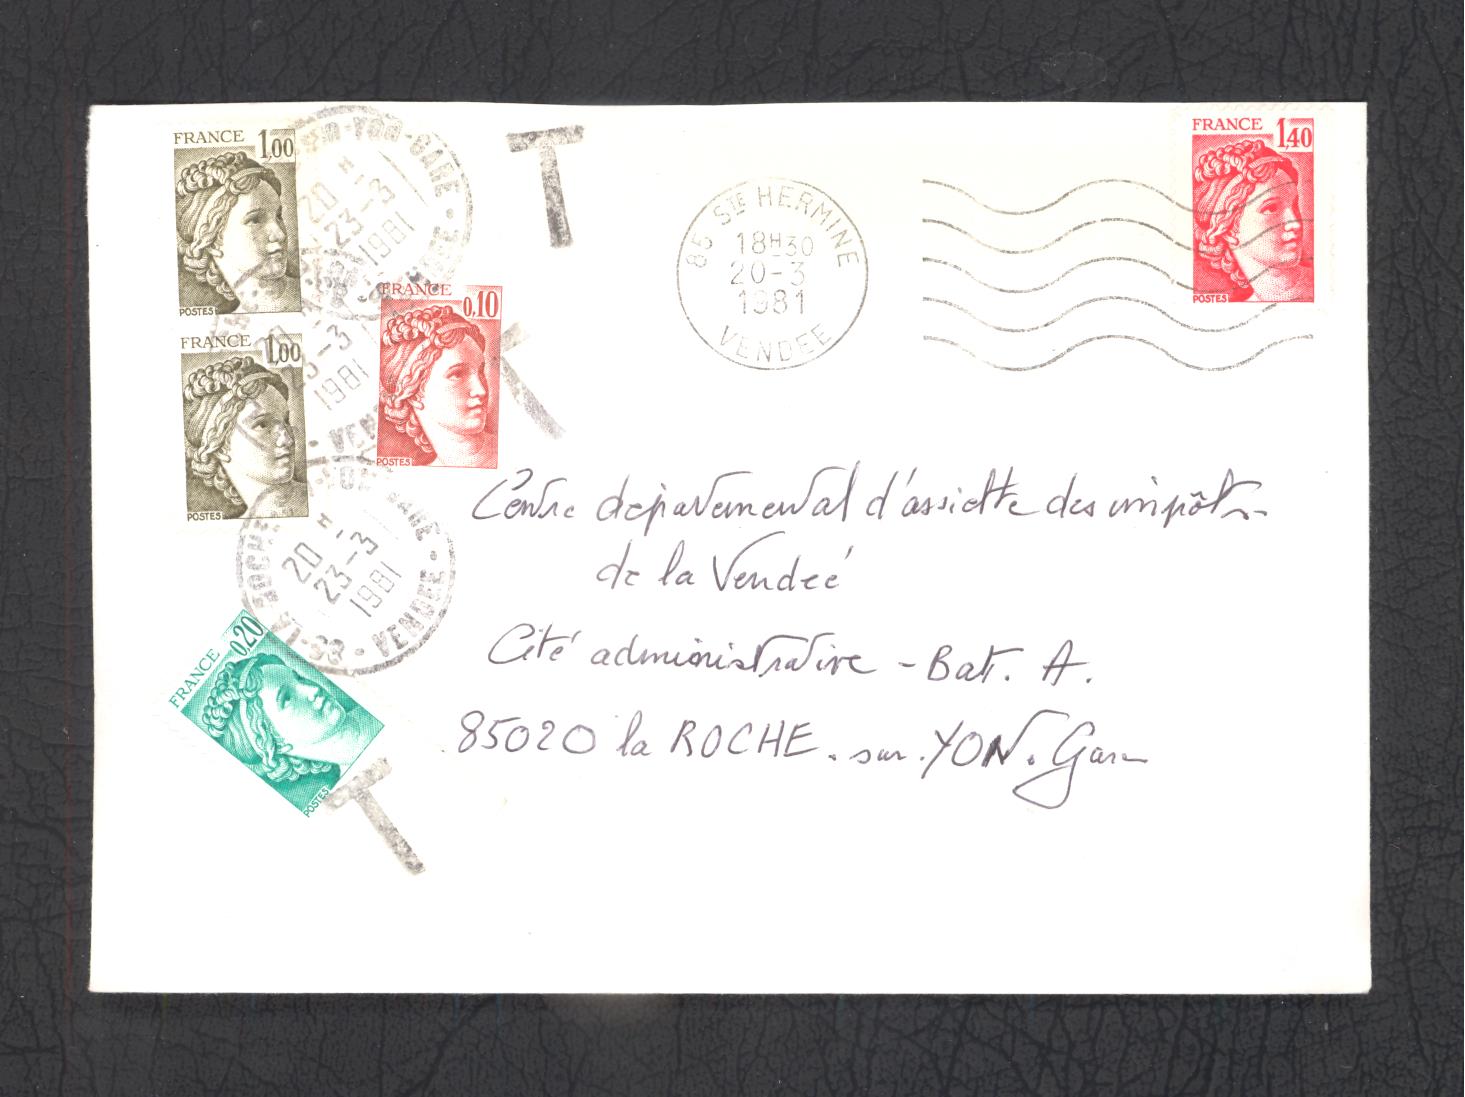 FRANCE 1,00
POSTES
FRANCE 1,00
POSTES
FRANCE 0,10
POSTES
FRANCE 0,20
POSTES
FRANCE 1,40
POSTES
T
T
85 STE HERMINE
18H30
20-3
1981
VENDEE
YON-GARE
20 H
23-3
1981
23-3
1981
85-LA ROCHE
20 H
23-3
1981
VENDEE
Centre départemental d'assiette des impôts
de la Vendée
Cité administrative - Bat. A.
85020 la ROCHE. sur. YON. Gare